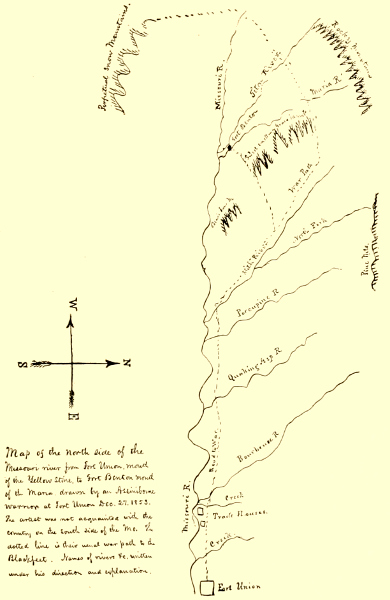 Perpetual Snow Mountains.
Rocky Mountains
Missouri R.
Teton River
Maria R.
Fort Benton
War Path
Milk River
North Fork
Pine Hills
Porcupine R
Quaking Asp R
Bourbeuse R
War Path
W
S
N
E
Missouri R.
Creek
Trade Houses.
Creek
Fort Union
Map of the north side of the
Missouri river from Fort Union, mouth
of the Yellow Stone, to Fort Benton mouth
of the Maria drawn by an Assiniboine
Warrior at Fort Union Dec. 27. 1853.
The artist was not acquainted with the
country on the South side of the Mo. The
dotted line is their usual war path to the
Blackfeet. Names of rivers &c. written
under his direction and explanation.